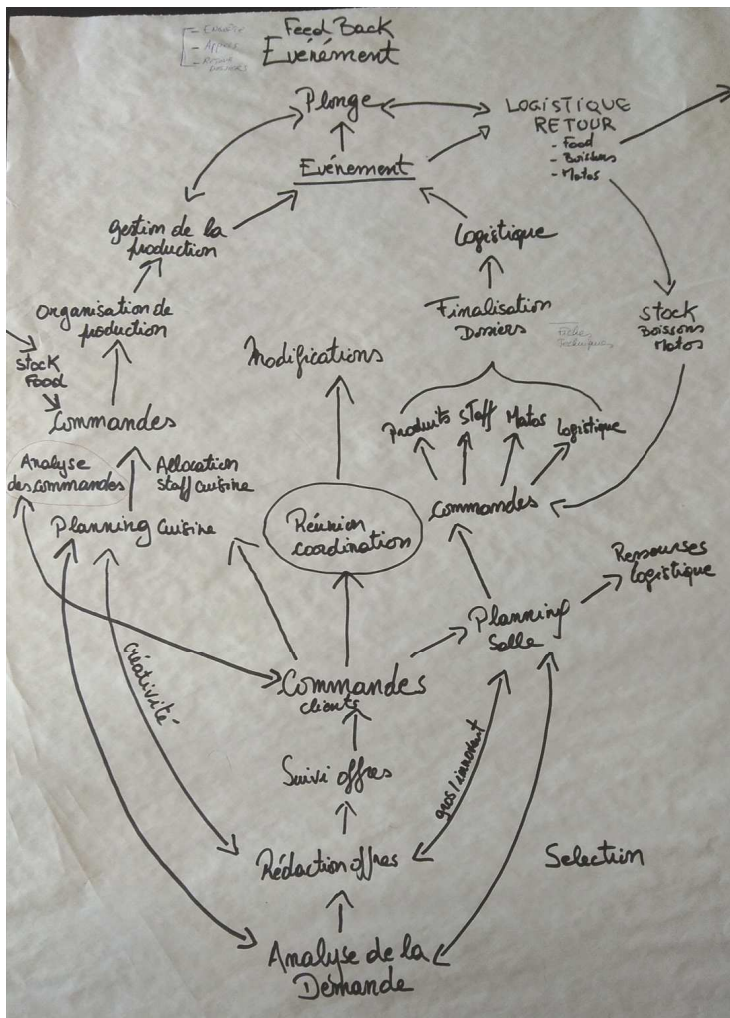 Feed Back
Evénément
Plonge
LOGISTIQUE
RETOUR
- Food
- Boissons
- Matos
Evénement
gestion de la
production
Logistique
Organisation de
production
Finalisation
Dossiers
Fiches
Techniques
Stock
Boissons
Matos
Stock
Food
Modifications
Commandes
Produits
Staff
Matos
Logistique
Analyse
des commandes
Allocation
Staff cuisine
Planning Cuisine
Réunion
coordination
Commandes
Ressourses
Logistique
Planning
Salle
Commandes
clients
créativité
gros/innovant
Suivi offres
Rédaction offres
Selection
Analyse de la
Demande